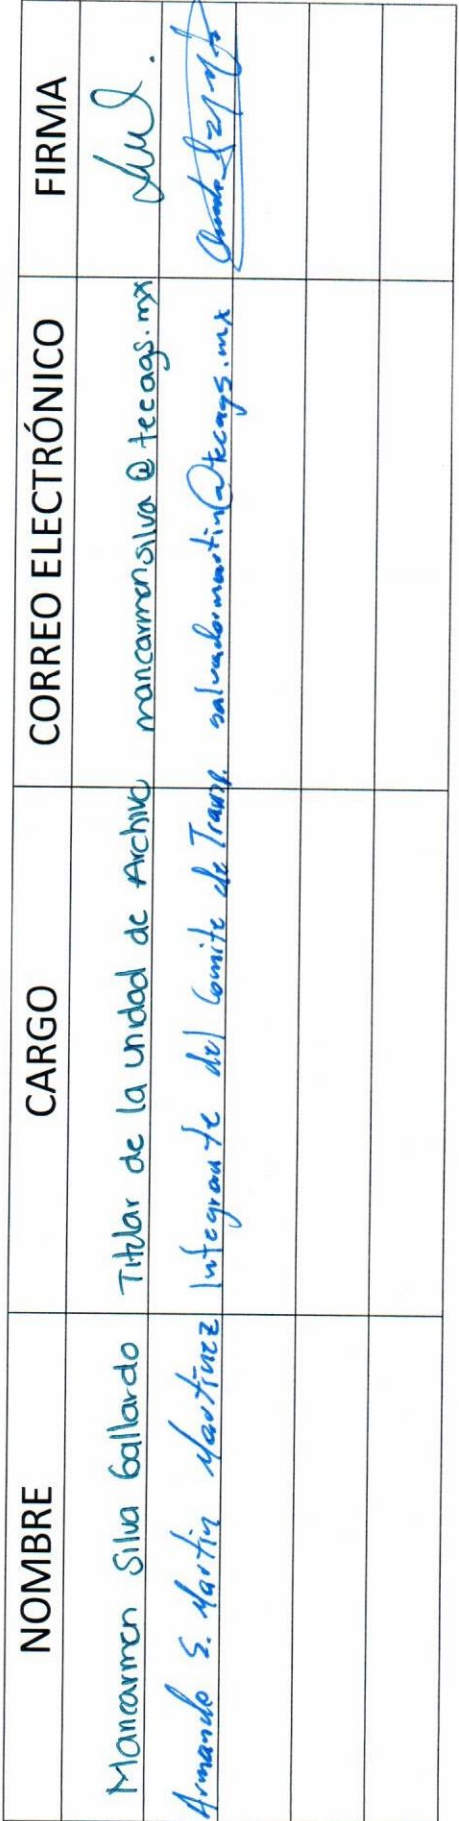 NOMBRE CARGO CORREO ELECTRÓNICO FIRMA
Maricarmen Silva Gallardo Titular de la unidad de Archivo maricarmensilva@tecags.mx
Armando S. Martin Martinez Integrante del Comite de Transp. salvadormartin@tecags.mx